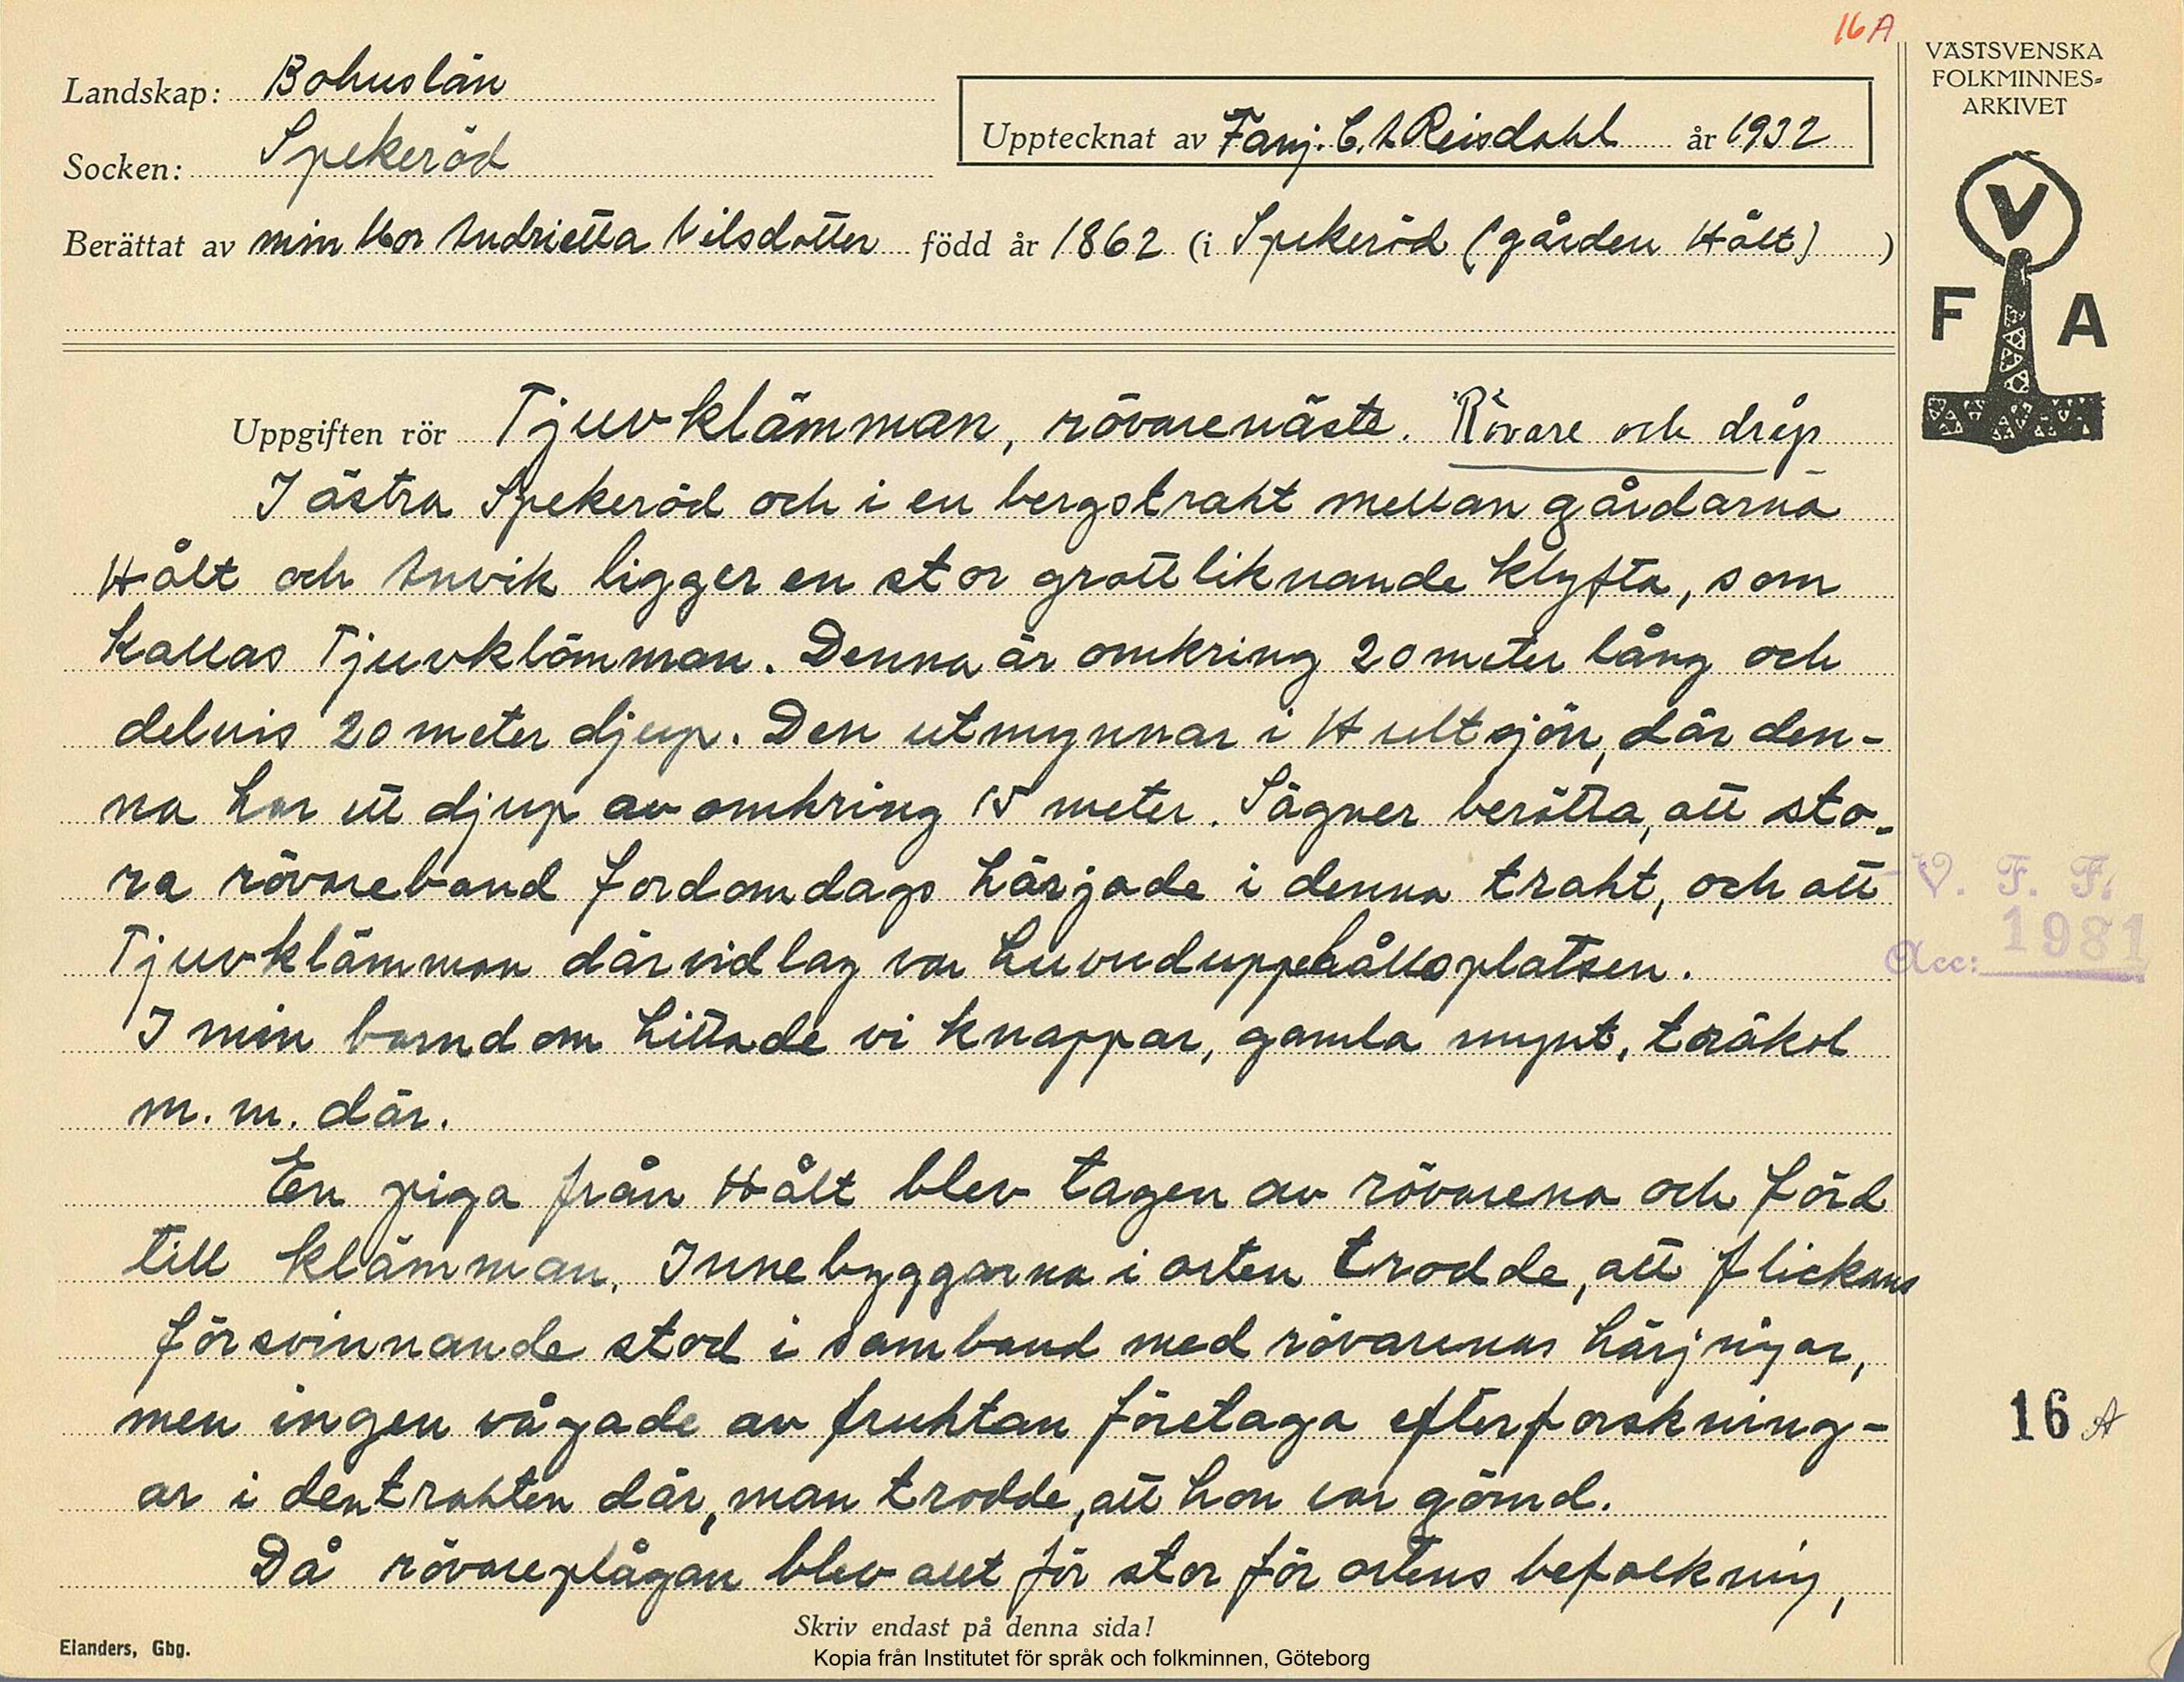 16A
VÄSTSVENSKA
FOLKMINNES-
ARKIVET
Landskap: Bohuslän
Upptecknat av Fanj. C. A Reisdahl år 1932
Socken: Spekeröd
Berättat av min Mor Andrietta Nilsdotter född år 1862 (i Spekeröd (gården Hålt) )
V
F A
Uppgiften rör Tjuvklämman, rövarenäste. Rövare och dråp
I östra Spekeröd och i en bergstrakt mellan gårdarna
Hålt och Anvik ligger en stor grottliknande klyfta, som
kallas Tjuvklämman. Denna är omkring 20 meter lång och
delvis 20 meter djup. Den utmynnar i Hultsjön, där den-
na har ett djup av omkring 15 meter. Sägner berätta, att sto-
ra rövareband fordomdags härjade i denna trakt, och att
Tjuvklämman därvidlag var huvuduppehållsplatsen.
I min barndom hittade vi knappar, gamla mynt, träkol
m. m. där.
En piga från Hålt blev tagen av rövarena och förd
till klämman. Innebyggarna i orten trodde, att flickans
försvinnande stod i samband med rövarenas härjningar,
men ingen vågade av fruktan företaga efterforskning-
ar i den trakten där, man trodde, att hon var gömd.
Då rövareplågan blev allt för stor för ortens befolkning,
V. F. F.
Acc: 1981
16 A
Skriv endast på denna sida!
Elanders, Gbg.
Kopia från Institutet för språk och folkminnen, Göteborg